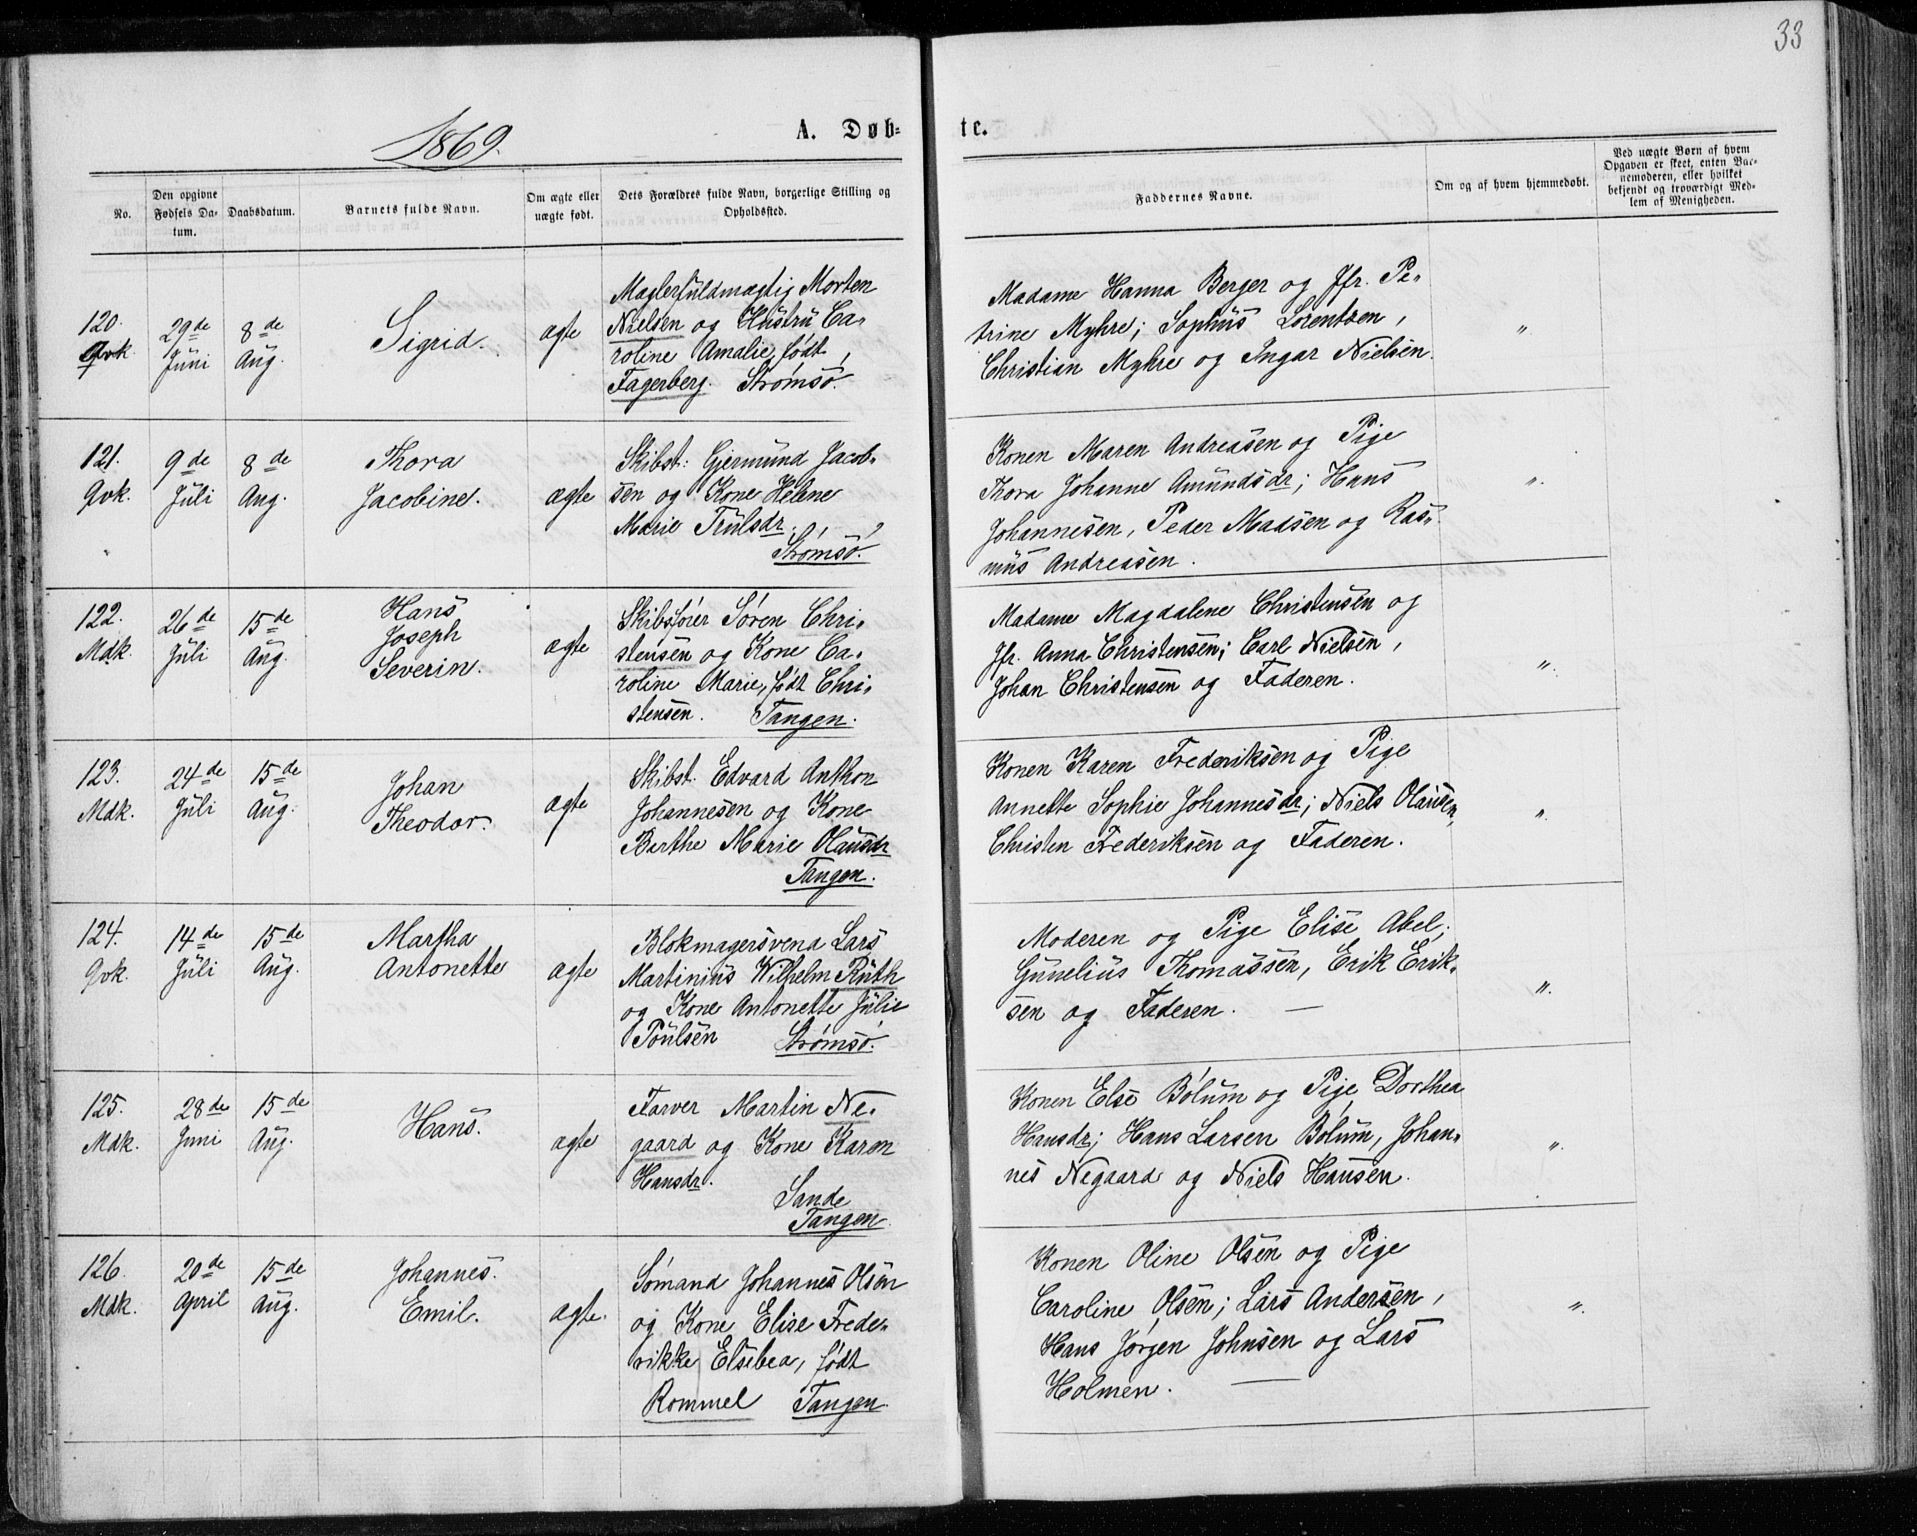 33
1869.
A. Døb-
te.
No.
Den opgivne Fødsels Da-
tum.
Daabsdatum.
Barnets fulde Navn.
Om ægte eller
uægte født.
Dets Forældres fulde Navn, borgerlige Stilling og
Opholdssted.
Faddernes Navne.
Om og af hvem hjemmedøbt.
Ved uægte Børn af hvem
Opgaven er skeet, enten Bar-
nemoderen, eller hvilket
bekjendt og troværdigt Med-
lem af Menigheden.
120.
Qvk.
29de
Juni
8de
Aug.
Sigrid.
ægte
Mæglerfuldmægtig Morten
Nielsen og Hustru Ca-
roline Amalie, født
Fagerberg. Strømsø.
Madame Hanna Berger og Jfr. Pe-
trine Myhre; Sophus Lorentzen,
Christian Myhre og Ingar Nielsen.
"
121.
Qvk.
9de
Juli
8de
Aug.
Thora
Jacobine.
ægte
Skibst: Gjermund Jacob-
sen og Kone Helene
Marie Trulsdr.
Strømsø.
Konen Maren Andreasen og Pige
Thora Johanne Amundsdr; Hans
Johannesen, Peder Madsen og Ras-
mus Andreasen.
"
122.
Mdk.
26de
Juli
15de
Aug.
Hans
Joseph
Severin.
ægte
Skibsfører Søren Chri-
stensen og Kone Ca-
roline Marie, født Chri-
stensen. Tangen.
Madame Magdalene Christensen og
Jfr. Anna Christensen; Carl Nielsen,
Johan Christensen og Faderen.
"
123.
Mdk.
24de
Juli
15de
Aug.
Johan
Theodor.
ægte
Skibst. Edvard Anthon
Johannesen og Kone
Berthe Marie Olausdr
Tangen.
Konen Karen Frederiksen og Pige
Annette Sophie Johannesdr; Niels Olausen,
Christen Frederiksen og Faderen.
"
124.
Qvk.
14de
Juli
15de
Aug.
Martha
Antonette
ægte
Blokmagersvend Lars
Martinius Wilhelm Ruth
og Kone Antonette Julie
Poulsen Strømsø.
Moderen og Pige Elise Abel;
Gunelius Thomassen, Erik Erik-
sen og Faderen. —
"
125.
Mdk.
28de
Juni
15de
Aug.
Hans.
ægte
Farver Martin Ne-
gaard og Kone Karen
Hansdr.
Sande
Tangen.
Konen Else Bølum og Pige Dorthea
Hansdr; Hans Larsen Bølum, Johan-
nes Negaard og Niels Hansen.
"
126.
Mdk.
20de
April
15de
Aug.
Johannes.
Emil.
ægte.
Sømand Johannes Olsen
og Kone Elise Frede-
rikke Elsebea, født
Rommel Tangen.
Konen Oline Olsen og Pige
Caroline Olsen; Lars Andersen,
Hans Jørgen Johnsen og Lars
Holmen. —
"